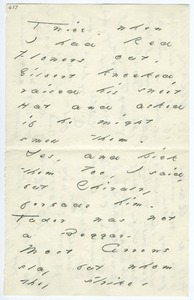 Twice, when
I had Red
Flowers out,
Gilbert knocked
raised his sweet
Hat and asked
if he might
touch them.
Yes, and pick
them too, I said,
but Chivalry
forbade him.
Tudor was not
a Beggar.
Most Arrows
slay but whom
they strike,